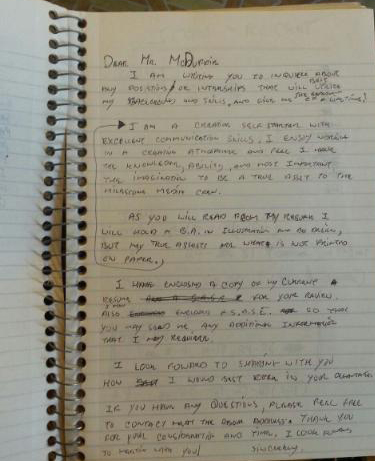 Dear Mr. McDurmin
I am writing you to inquire about
any positions or internships that will best utilize
my background and skills, and give me
I am a creative self starter with
excellent communication skills. I enjoy working
in a creative atmosphere and feel I have
the knowledge, ability, and most important,
the imagination to be a true asset to the
Milestone Media crew.
As you will read from my resume I
will hold a B.A. in Illustration and
but my true assets are what is not printed
on paper.
I have enclosed a copy of my current
resume for your review.
Also enclosed S.A.S.E. so that
you may send me any additional information
that I may require.
I look foward to sharing with you
how I would best work in your
If you have any questions, please feel free
to contact me at the above address. Thank you
for your consideration and time. I look foward
to meeting with you
Sincerely,